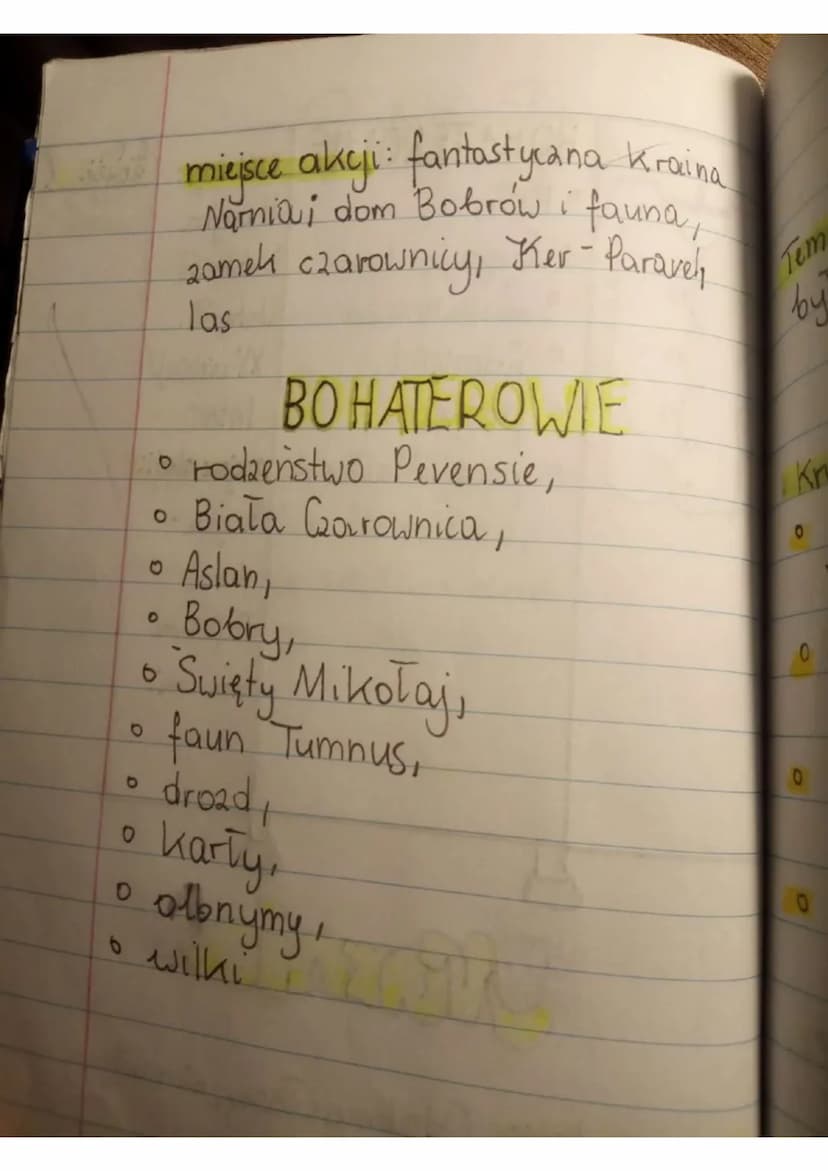 miejsce akcji: fantastyczna Kraina
Narnia; dom Bobrów i fauna,
zamek czarownicy, Ker-Paravel,
las
BOHATEROWIE
o rodzeństwo Pevensie,
o Biała Czarownica,
o Aslan,
o Bobry,
o Święty Mikołaj,
o faun Tumnus,
o drozd,
o karły,
o olbrzymy,
o wilki
Tem
by
Kr